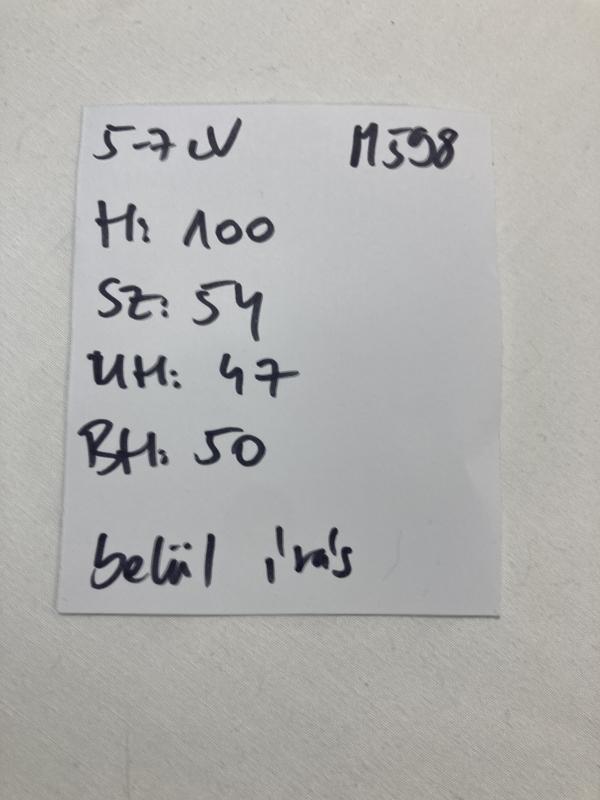 5-7 N M598
H: 100
SZ: 54
UH: 47
BH: 50
belül írás